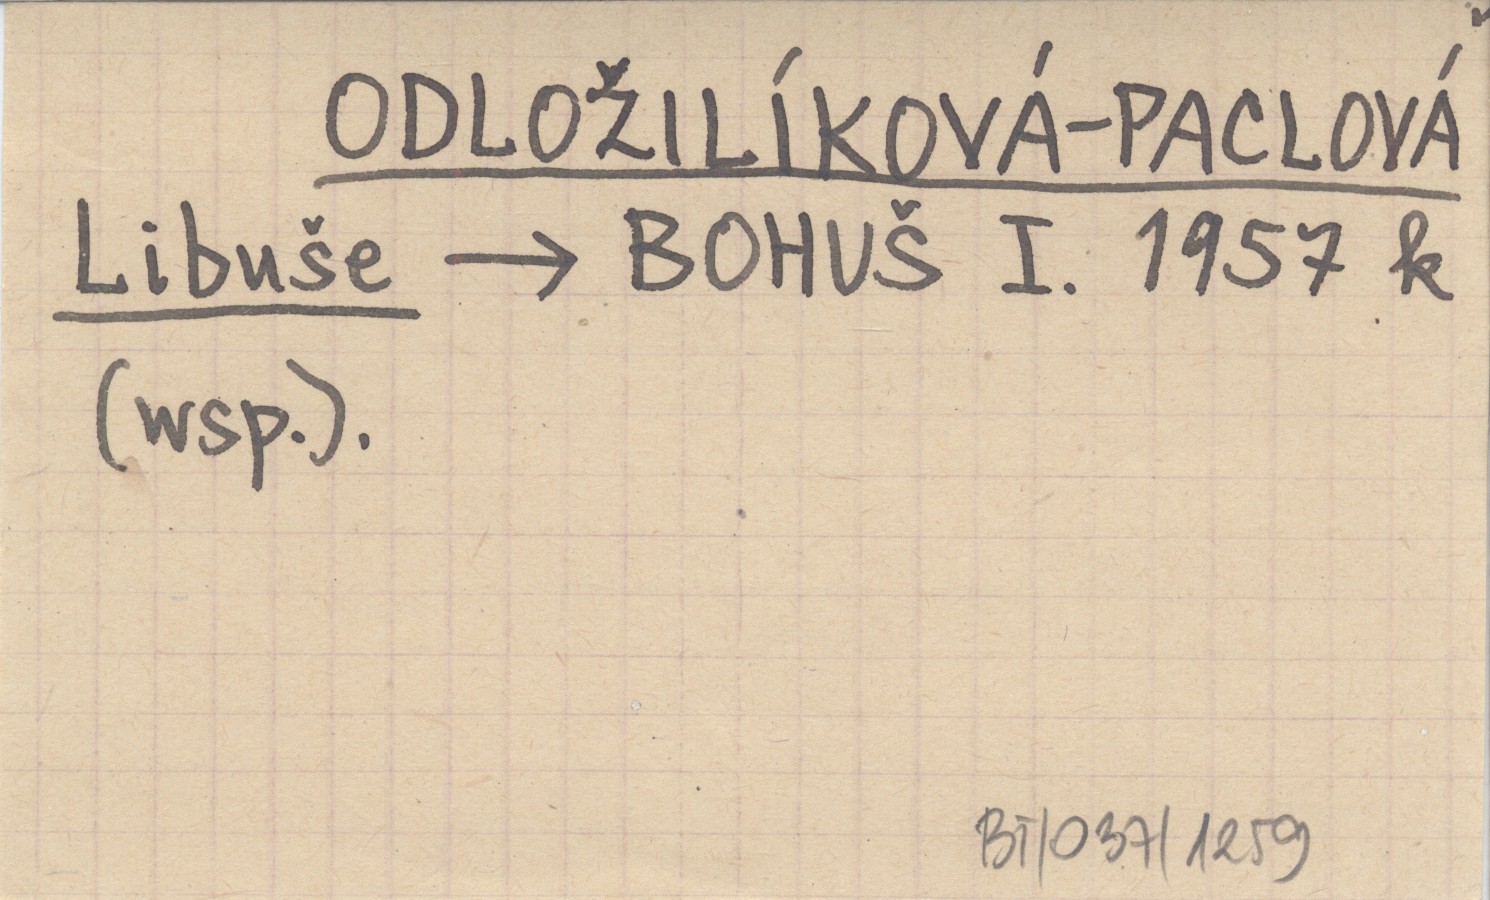 ODLOŽILÍKOVÁ-PACLOVÁ
Libuše → BOHUŠ I. 1957 k
(wsp.).
BT/037/1259